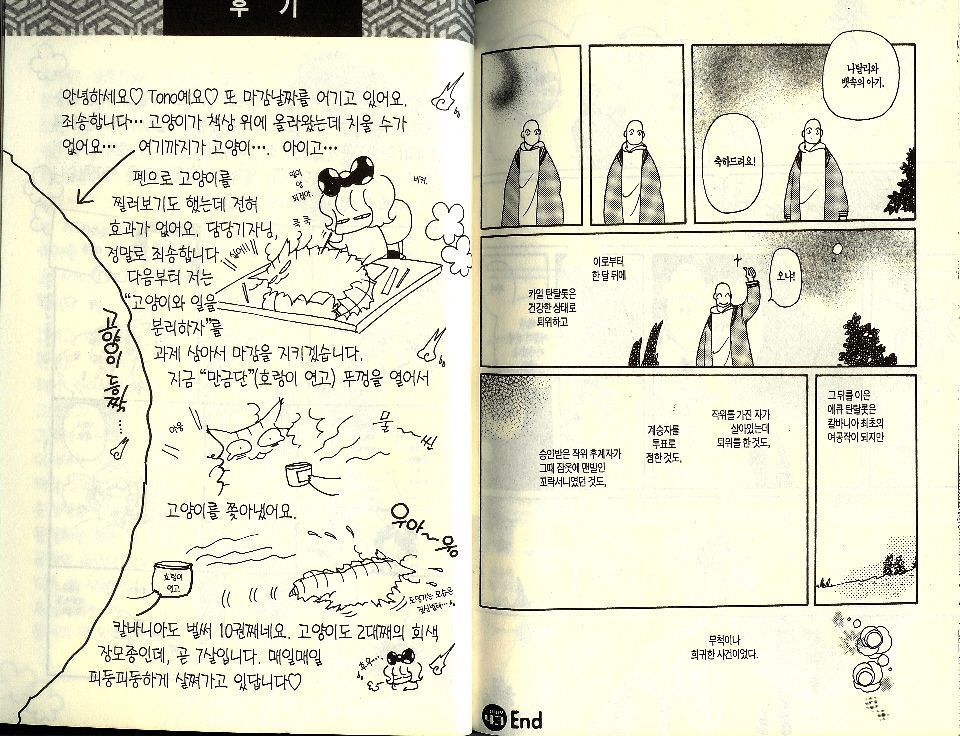 후 기
안녕하세요♡ Tono예요♡ 또 마감날짜를 어기고 있어요.
죄송합니다… 고양이가 책상 위에 올라왔는데 치울 수가
없어요… 여기까지가 고양이…. 아이고…
펜으로 고양이를
찔러보기도 했는데 전혀
효과가 없어요. 담당기자님,
정말로 죄송합니다.
다음부터 저는
"고양이와 일을
분리하자"를
과제 삼아서 마감을 지키겠습니다.
지금 "만금단"(호랑이 연고) 뚜껑을 열어서
쿡 쿡
고양이 등짝…
야옹
물~씬
고양이를 쫓아냈어요.
우아~앙
호랑이
연고
도망가는 모습은
칼바니아도 벌써 10권째네요. 고양이도 2대째의 회색
장모종인데, 곧 7살입니다. 매일매일
피둥피둥하게 살쪄가고 있답니다♡
나탈리와
뱃속의 아기.
축하드려요!
이로부터
한 달 뒤에
카일 탄탈롯은
건강한 상태로
퇴위하고
오냐!
그 뒤를 이은
에큐 탄탈롯은
칼바니아 최초의
여공작이 되지만
직위를 가진 자가
살아있는데
퇴위를 한 것도,
계승자를
투표로
정한 것도,
승인받은 작위 후계자가
그때 잠옷에 맨발인
꼬락서니였던 것도,
무척이나
희귀한 사건이었다.
47 End